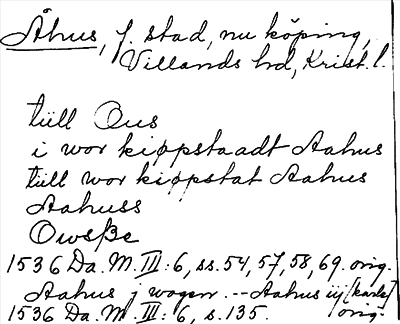 Åhus, f. stad, nu köping,
Villands hd, Krist. l.
tiill Ous
i wor kiøpstaadt Aahus
tiill wor kiøpstat Aahus
Aahuss
Owsße
1536 Da. M. III: 6, ss. 54, 57, 58, 69. orig.
Aahus j wogen --- Aahus iij [karle]
1536 Da. M. III: 6, s. 135. orig.